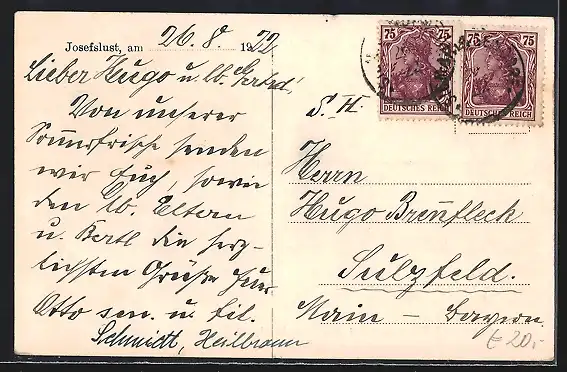 Josefslust, am 26.8. 1922
Lieber Hugo u. lb. Gertrd!
Von unserer
Som̅erfrische senden
wir Euch, sowie
den lb. Eltern
u. Bertl die herz-
lichsten Grüße Euer
Otto sen. u. fil.
Schmidt, Heilbronn
75 75
DEUTSCHES REICH
75 75
DEUTSCHES REICH
S. H.
Herrn
Hugo Bren̅fleck
Sulzfeld.
Main – Bayern.
€ 20,-